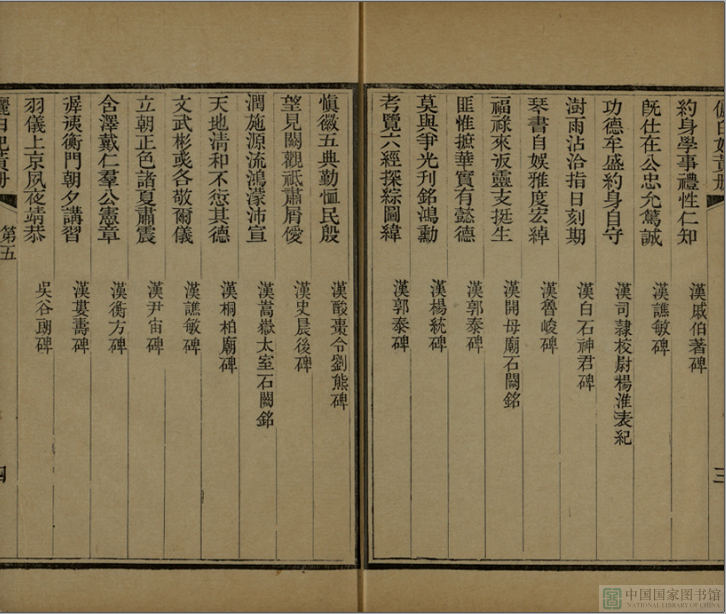 約身學事禮性仁知 漢戚伯著碑
既仕在公忠允篤誠 漢譙敏碑
功德牟盛約身自守 漢司隸校尉楊淮表紀
澍雨沾洽指日刻期 漢白石神君碑
琴書自娱雅度宏綽 漢魯峻碑
福祿來返靈支挺生 漢開母廟石闕銘
匪惟摭華實有懿德 漢郭泰碑
莫與爭光刊銘鴻勳 漢楊統碑
考覽六經探綜圖緯 漢郭泰碑
三
慎徽五典勤恤民殷 漢酸棗令劉熊碑
望見闕觀祇肅屑僾 漢史晨後碑
潤施源流鴻濛沛宣 漢嵩嶽太室石闕銘
天地清和不愆其德 漢桐柏廟碑
文武彬彧各敬爾儀 漢譙敏碑
立朝正色諸夏肅震 漢尹宙碑
含澤戴仁羣公憲章 漢衡方碑
遟夷衡門朝夕講習 漢婁壽碑
羽儀上京夙夜靖恭 吳谷朗碑
第五
四
中国国家图书馆
NATIONAL LIBRARY OF CHINA